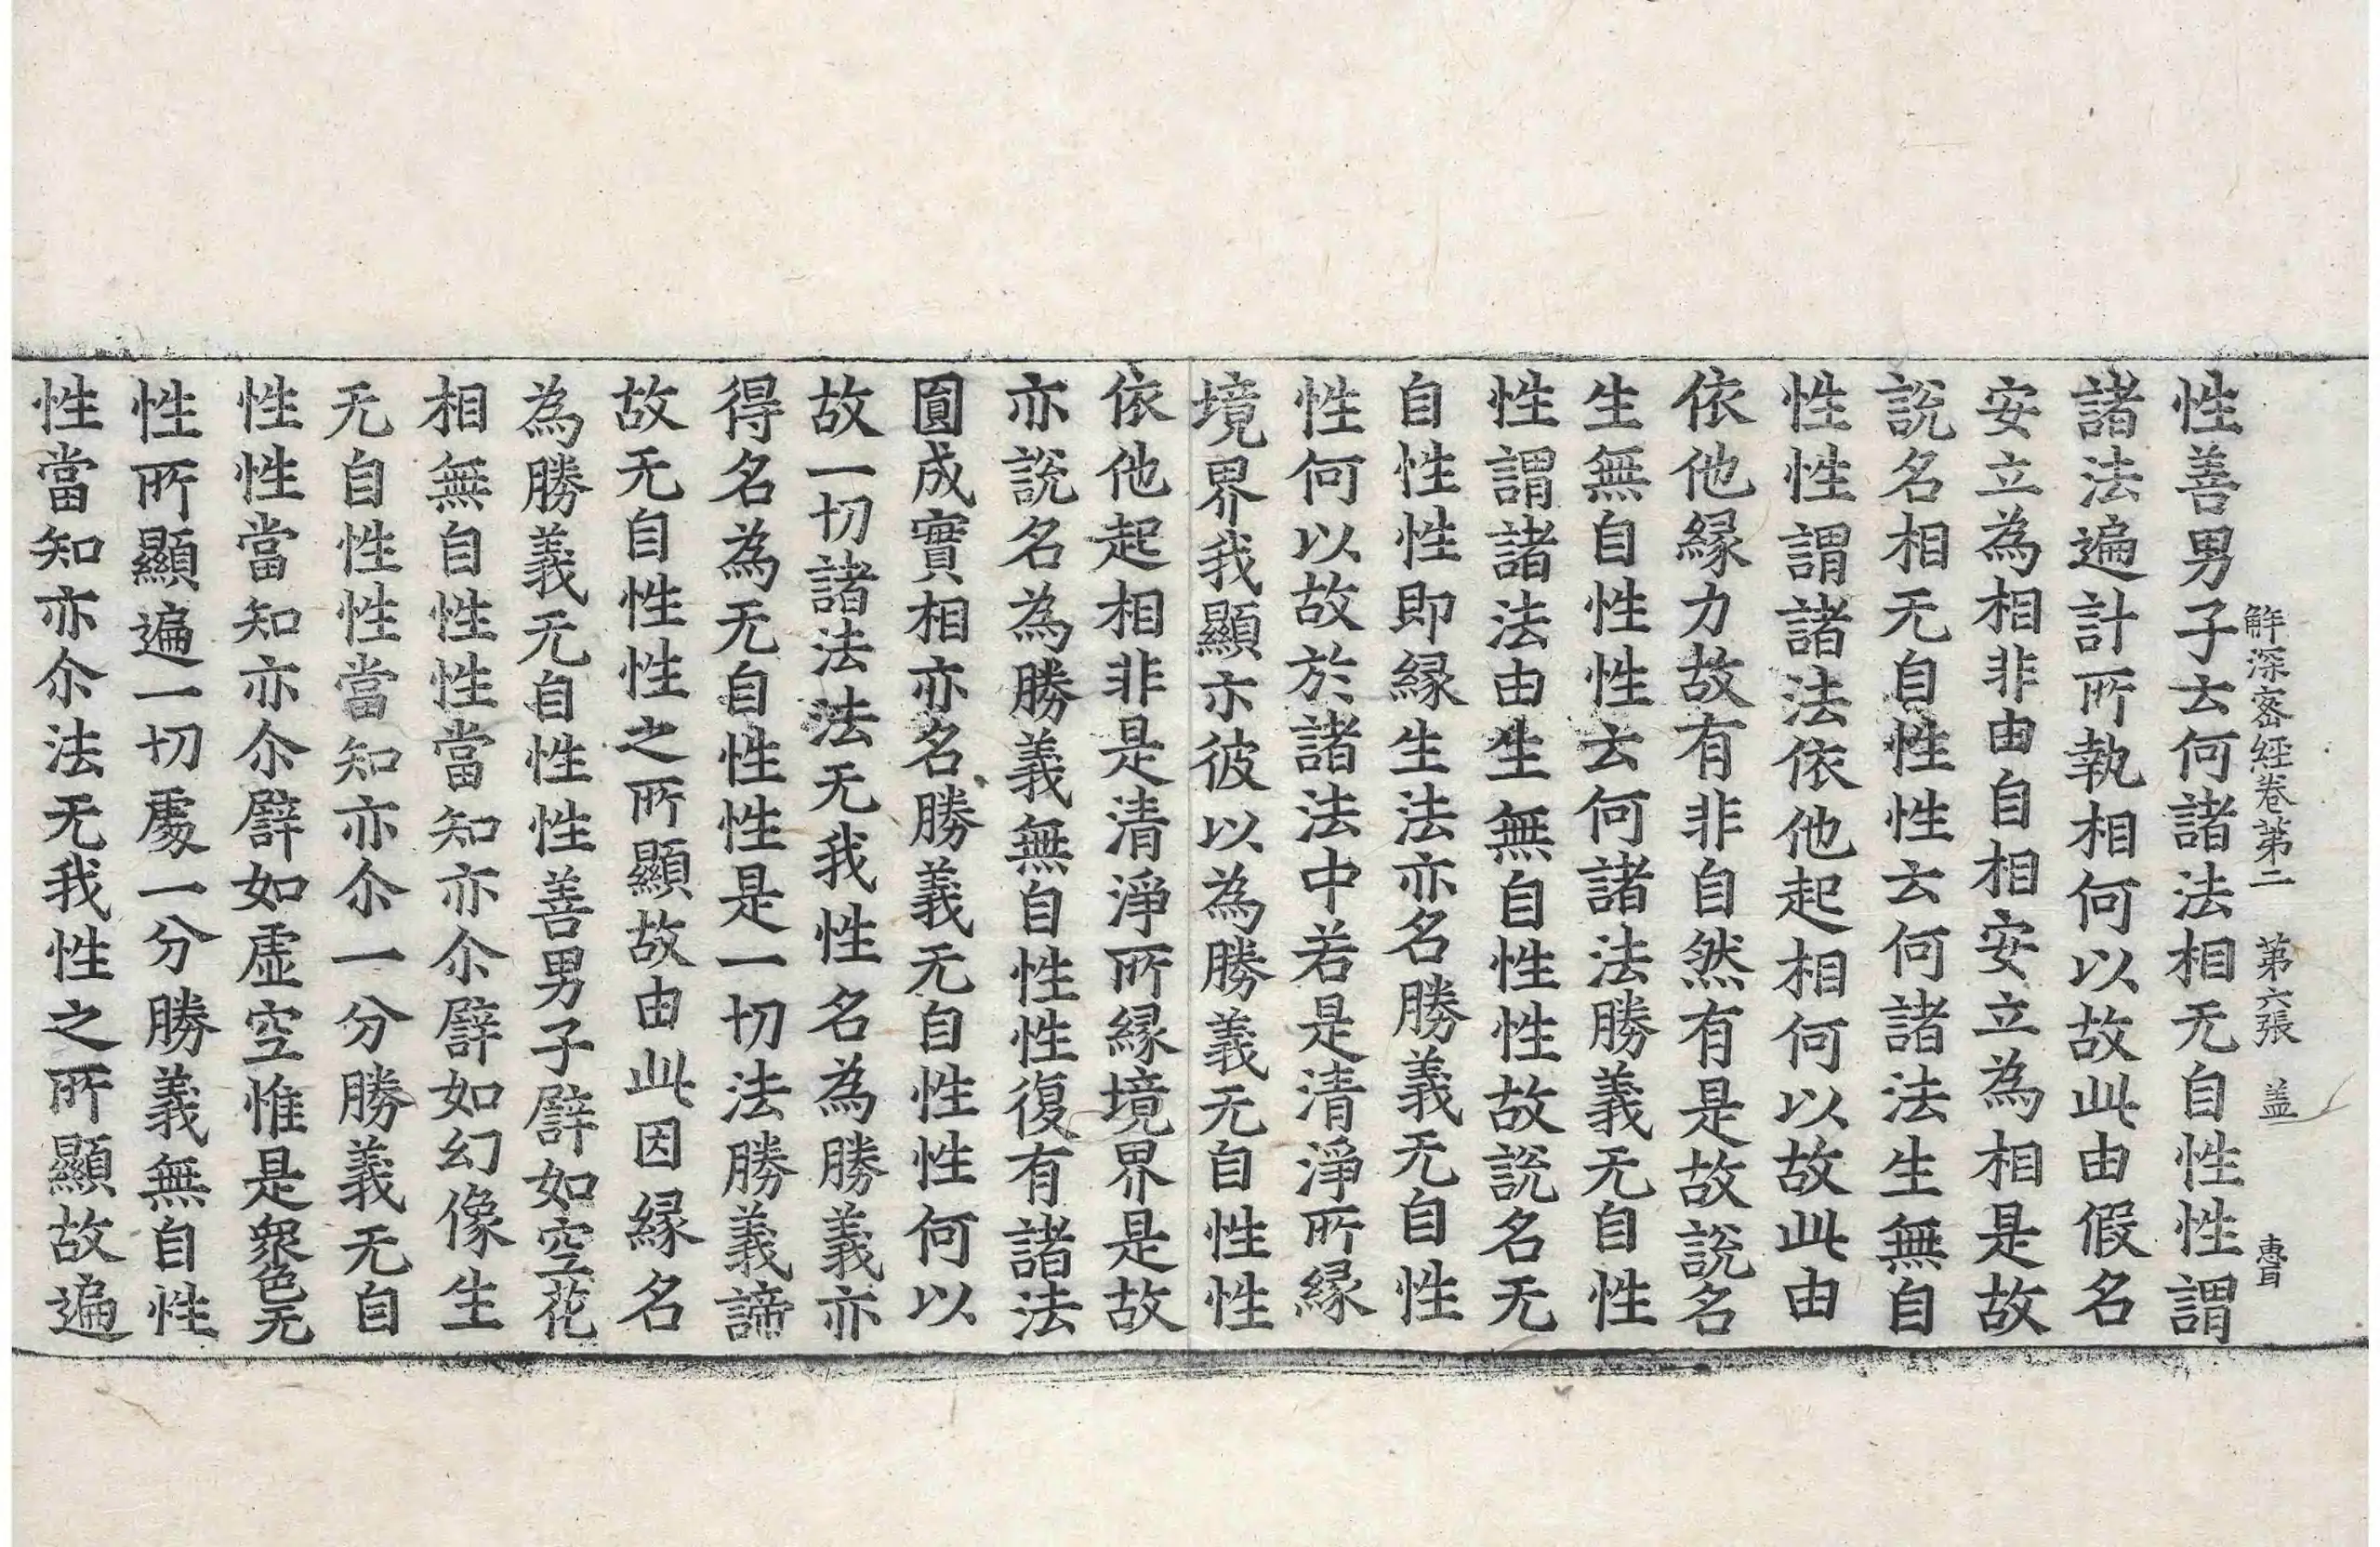 觧深密經卷第二 第六張 盖 惠
性善男子云何諸法相无自性性謂
諸法遍計所執相何以故此由假名
安立為相非由自相安立為相是故
說名相无自性性云何諸法生無自
性性謂諸法依他起相何以故此由
依他縁力故有非自然有是故說名
生無自性性云何諸法勝義无自性
性謂諸法由生無自性性故說名无
自性性即縁生法亦名勝義无自性
性何以故於諸法中若是清淨所縁
境界我顯示彼以為勝義无自性性
依他起相非是清淨所縁境界是故
亦說名為勝義無自性性復有諸法
圓成實相亦名勝義无自性性何以
故一切諸法法无我性名為勝義亦
得名為无自性性是一切法勝義諦
故无自性性之所顯故由此因縁名
為勝義无自性性善男子譬如空花
相無自性性當知亦尒譬如幻像生
无自性性當知亦尒一分勝義无自
性性當知亦尒譬如虛空惟是衆色无
性所顯遍一切處一分勝義無自性
性當知亦尒法无我性之所顯故遍